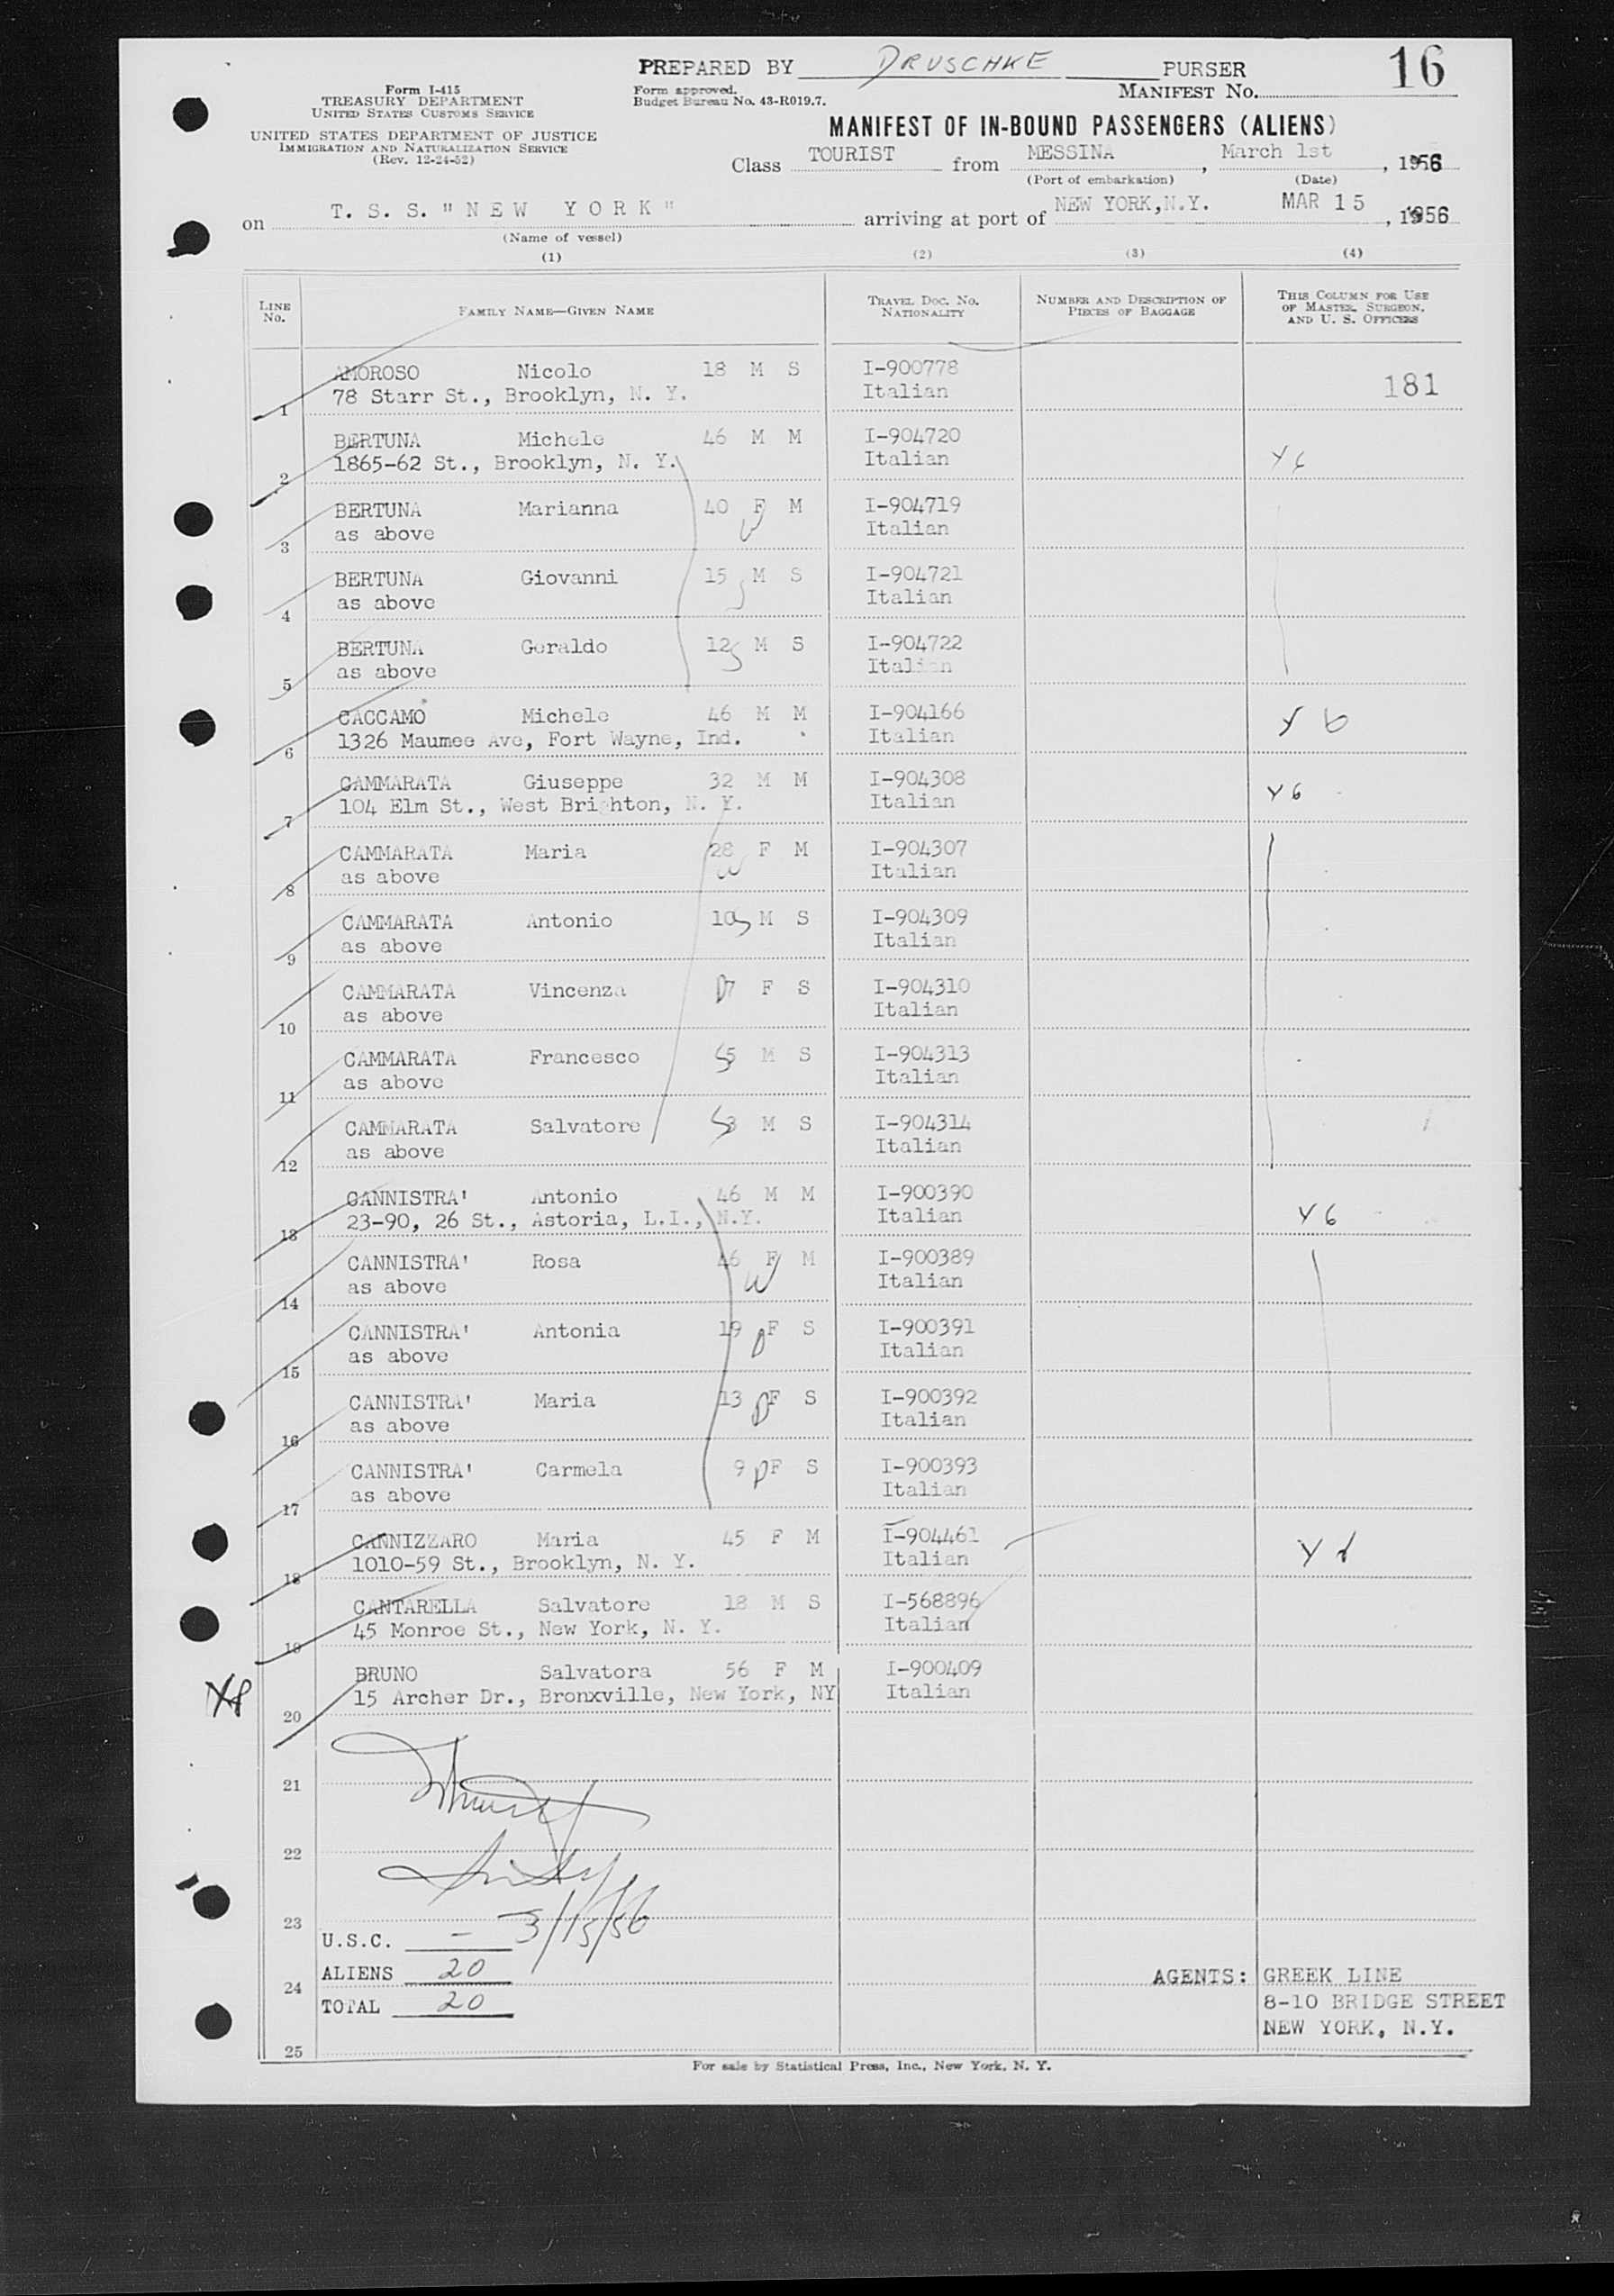 PREPARED BY DRUSCHKE PURSER
16
Form I-415
TREASURY DEPARTMENT
UNITED STATES CUSTOMS SERVICE
UNITED STATES DEPARTMENT OF JUSTICE
IMMIGRATION AND NATURALIZATION SERVICE
(Rev. 12-24-52)
Form approved.
Budget Bureau No. 43-R019.7.
MANIFEST NO.
MANIFEST OF IN-BOUND PASSENGERS (ALIENS)
Class TOURIST from MESSINA, March 1st, 1956
(Port of embarkation) (Date)
on T. S. S. "NEW YORK" arriving at port of NEW YORK, N.Y. MAR 15, 1956
(Name of vessel)
(1) (2) (3) (4)
LINE NO. FAMILY NAME—GIVEN NAME TRAVEL DOC. NO. NATIONALITY NUMBER AND DESCRIPTION OF PIECES OF BAGGAGE THIS COLUMN FOR USE OF MASTER, SURGEON, AND U. S. OFFICERS
AMOROSO Nicolo 18 M S I-900778
1 78 Starr St., Brooklyn, N. Y. Italian 181
BERTUNA Michele 46 M M I-904720
2 1865-62 St., Brooklyn, N. Y. Italian
BERTUNA Marianna 40 F M I-904719
3 as above Italian
BERTUNA Giovanni 15 M S I-904721
4 as above Italian
BERTUNA Geraldo 12 M S I-904722
5 as above Italian
CACCAMO Michele 46 M M I-904166
6 1326 Maumee Ave, Fort Wayne, Ind. Italian
CAMMARATA Giuseppe 32 M M I-904308
7 104 Elm St., West Brighton, N. Y. Italian
CAMMARATA Maria 28 F M I-904307
8 as above Italian
CAMMARATA Antonio 10 M S I-904309
9 as above Italian
CAMMARATA Vincenza 7 F S I-904310
10 as above Italian
CAMMARATA Francesco 5 M S I-904313
11 as above Italian
CAMMARATA Salvatore 3 M S I-904314
12 as above Italian
CANNISTRA' Antonio 46 M M I-900390
13 23-90, 26 St., Astoria, L.I., N.Y. Italian
CANNISTRA' Rosa 46 F M I-900389
14 as above Italian
CANNISTRA' Antonia 19 F S I-900391
15 as above Italian
CANNISTRA' Maria 13 F S I-900392
16 as above Italian
CANNISTRA' Carmela 9 F S I-900393
17 as above Italian
CANNIZZARO Maria 45 F M I-904461
18 1010-59 St., Brooklyn, N. Y. Italian
CANTARELLA Salvatore 18 M S I-568896
19 45 Monroe St., New York, N. Y. Italian
BRUNO Salvatora 56 F M I-900409
20 15 Archer Dr., Bronxville, New York, NY Italian
21
22
23
U.S.C. - 3/15/56
ALIENS 20
24
TOTAL 20
25
AGENTS: GREEK LINE
8-10 BRIDGE STREET
NEW YORK, N.Y.
For sale by Statistical Press, Inc., New York, N. Y.